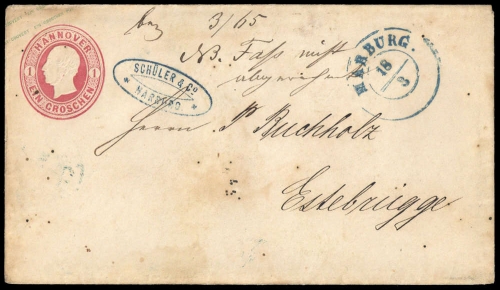 HANNOVER
1 1
EIN GROSCHEN
3/65
NB. Fass nicht
SCHÜLER & Co
* HARBURG *
HARBURG.
18
3
Herrn P. Buchholz
Estebrügge